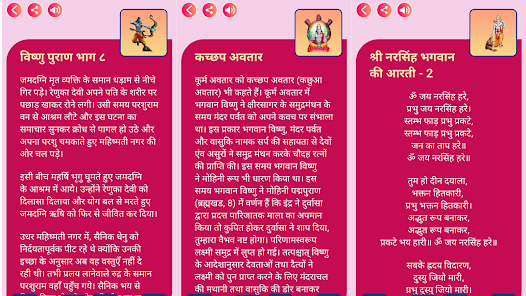 विष्णु पुराण भाग ८
जमदग्नि मृत व्यक्ति के समान धड़ाम से नीचे
गिर पड़े। रेणुका देवी अपने पति के शरीर पर
पछाड़ खाकर रोने लगी। उसी समय परशुराम
वन से आश्रम लौटे और इस घटना का
समाचार सुनकर क्रोध से पागल हो उठे और
अपना परशु चमकाते हुए महिष्मती नगर की
ओर चल पड़े।
इसी बीच महर्षि भृगु घूमते हुए जमदग्नि
के आश्रम में आये। उन्होंने रेणुका देवी को
दिलासा दिलाया और योग बल से मरते हुए
जमदग्नि ऋषि को फिर से जीवित कर दिया।
उधर महिष्मती नगर में, सैनिक धेनु को
निर्दयतापूर्वक पीट रहे थे क्योंकि उनकी
इच्छा के अनुसार अब वह वस्तुएँ नहीं दे
रही थी। तभी प्रलय लानेवाले रुद्र के समान
परशुराम वहाँ पहुँच गये। सैनिक भय से
कच्छप अवतार
कूर्म अवतार को कच्छप अवतार (कछुआ
अवतार) भी कहते हैं। कूर्म अवतार में
भगवान विष्णु ने क्षीरसागर के समुद्रमंथन के
समय मंदर पर्वत को अपने कवच पर संभाला
था। इस प्रकार भगवान विष्णु, मंदर पर्वत
और वासुकि नामक सर्प की सहायता से देवों
एंव असुरों ने समुद्र मंथन करके चौदह रत्नों
की प्राप्ति की। इस समय भगवान विष्णु
ने मोहिनी रूप भी धारण किया था। इस
समय भगवान विष्णु ने मोहिनी पद्मपुराण
(ब्रह्मखड, 8) में वर्णन हैं कि इंद्र ने दुर्वासा
द्वारा प्रदत्त पारिजातक माला का अपमान
किया तो कुपित होकर दुर्वासा ने शाप दिया,
तुम्हारा वैभव नष्ट होगा। परिणामस्वरूप
लक्ष्मी समुद्र में लुप्त हो गई। तत्पश्चात् विष्णु
के आदेशानुसार देवताओं तथा दैत्यों ने
लक्ष्मी को पुन प्राप्त करने के लिए मंदराचल
की मथानी तथा वासुकि की डोर बनाकर
श्री नरसिंह भगवान
की आरती - 2
ॐ जय नरसिंह हरे,
प्रभु जय नरसिंह हरे।
स्तम्भ फाड़ प्रभु प्रकटे,
स्तम्भ फाड़ प्रभु प्रकटे,
जन का ताप हरे॥
ॐ जय नरसिंह हरे॥
तुम हो दीन दयाला,
भक्तन हितकारी,
प्रभु भक्तन हितकारी।
अद्भुत रूप बनाकर,
अद्भुत रूप बनाकर,
प्रकटे भय हारी॥ ॐ जय नरसिंह हरे॥
सबके ह्रदय विदारण,
दुस्यु जियो मारी,
प्रभु दुस्यु जियो मारी।